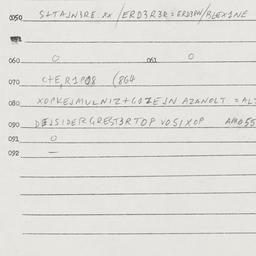 0050 S+TAJW3RE.XX/ERD3R3R=ERD3RW/BLEX1NE
060 O 061 O
070 C+E,R1P08 (8G4
080 XOPKEJMULNIZ+COZEJN AZANOLT =AL
090 DEJSIDERGREST3RTOP VOSIXOP AM055
091 O
092 —